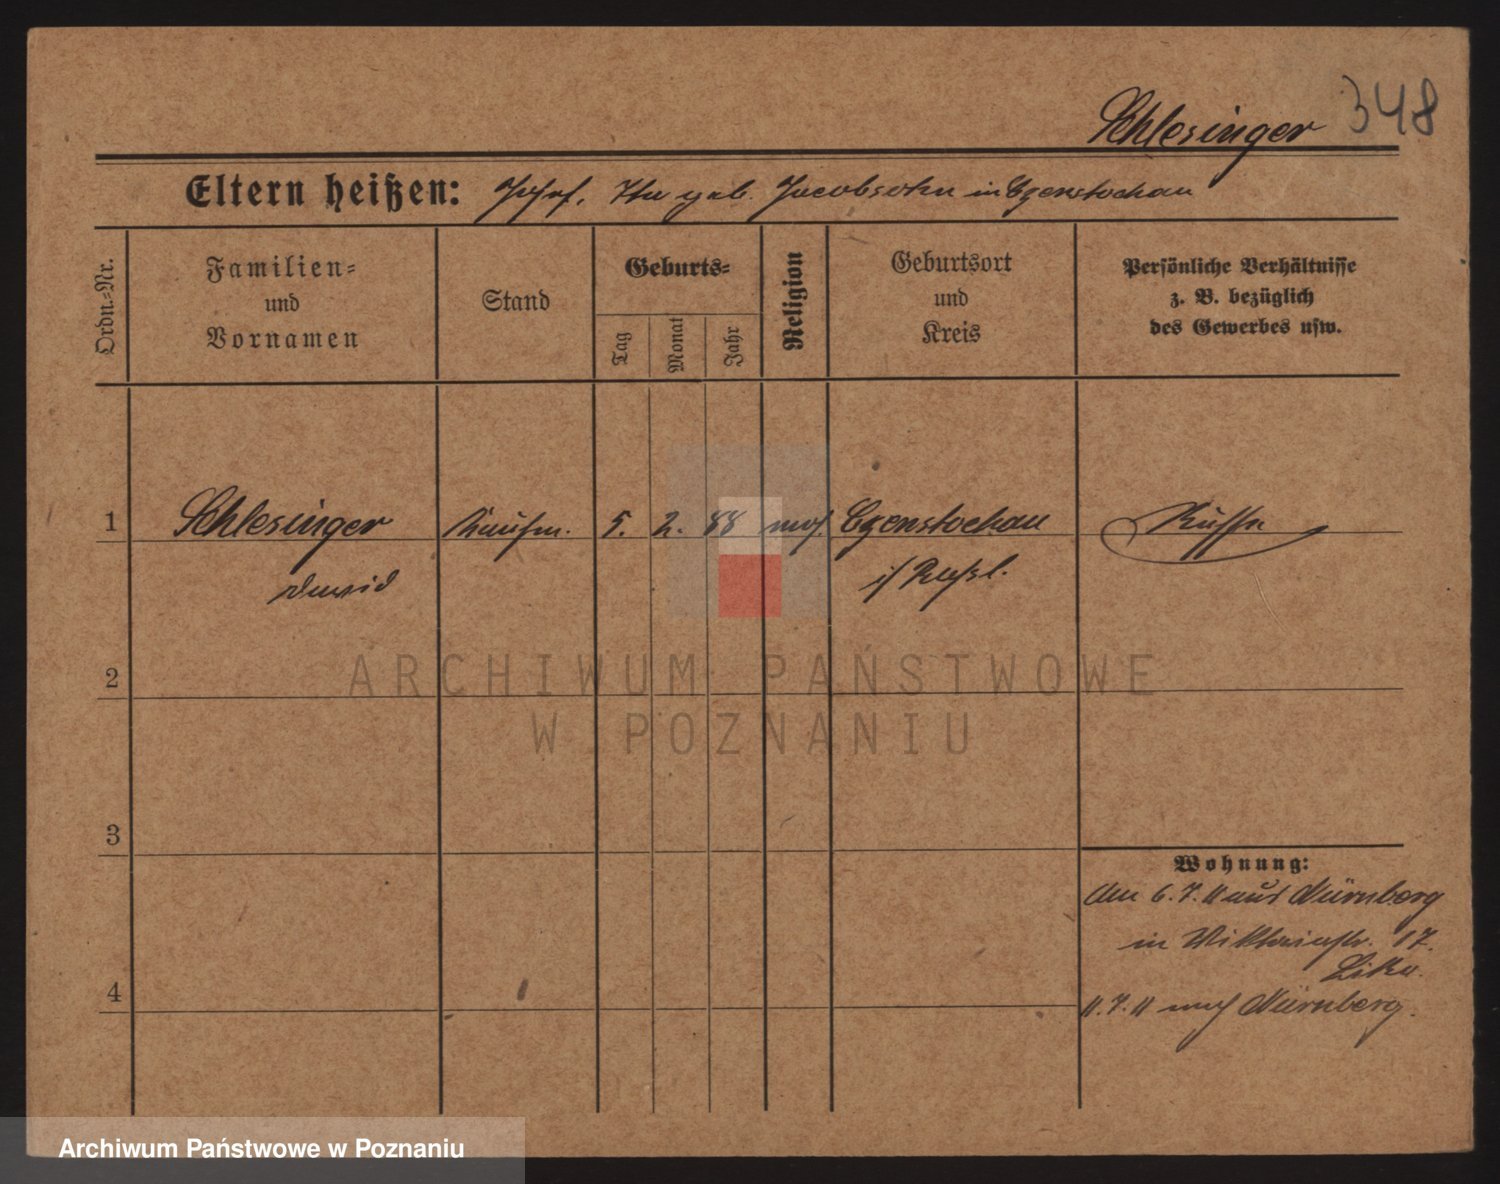 Schlesinger 348
Eltern heißen: geb. Jacobsohn in Czenstochau
Ordn.=Nr.
Familien=
und
Vornamen
Stand
Geburts=
Tag
Monat
Jahr
Religion
Geburtsort
und
Kreis
Persönliche Verhältnisse
z. B. bezüglich
des Gewerbes usw.
1 Schlesinger Kaufm. 5. 2. 88 mos. Czenstochau Russe
David i/ Russl.
ARCHIWUM PAŃSTWOWE
W POZNANIU
2
3
Wohnung:
Am 6.7.11 aus Nürnberg
in Viktoriastr. 17.
4
11.7.11 nach Nürnberg.
Archiwum Państwowe w Poznaniu